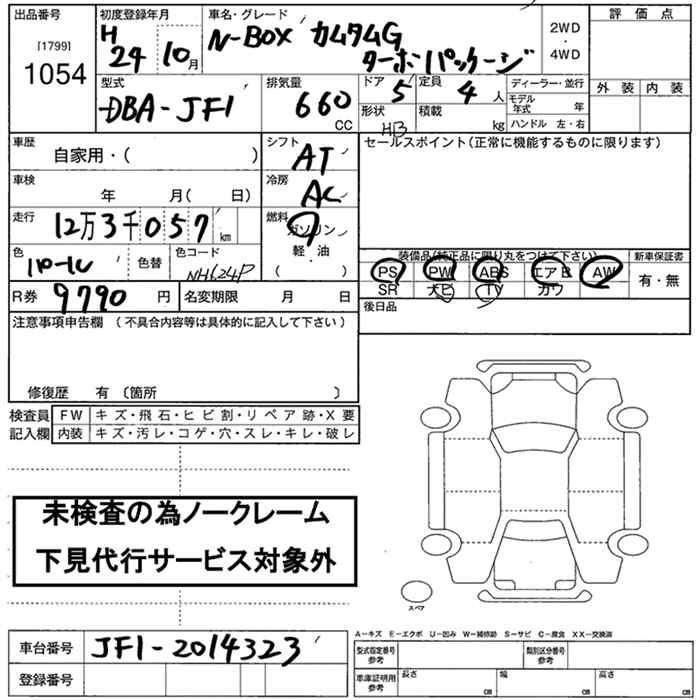 出品番号
[1799]
1054
初度登録年月
H
24 10月
車名・グレード
N-BOX カスタムG
ターボパッケージ
2WD
・
4WD
評価点
外装 内装
型式
DBA-JF1
排気量
660
CC
ドア 5
定員 4 人
形状 HB
積載 kg
ディーラー・並行
モデル年式 年
ハンドル 左・右
車歴
自家用・( )
シフト AT
セールスポイント(正常に機能するものに限ります)
車検
年 月( 日)
冷房 AC
走行
12万3千057 km
燃料
ガソリン
軽・油
( )
色
パール
色替
色コード
NH624P
装備品(純正品に限り丸をつけて下さい)
PS PW ABS エアB AW
SR ナビ TV カワ
新車保証書
有・無
R券 9790 円
名変期限 月 日
後日品
注意事項申告欄 (不具合内容等は具体的に記入して下さい)
修復歴 有 〔箇所 〕
検査員
記入欄
FW キズ・飛石・ヒビ割・リペア跡・X要
内装 キズ・汚レ・コゲ・穴・スレ・キレ・破レ
未検査の為ノークレーム
下見代行サービス対象外
スペア
車台番号 JF1-2014323
登録番号
A−キズ E−エクボ U−凹み W−補修跡 S−サビ C−腐食 XX−交換済
型式指定番号
参考
類別区分番号
参考
車庫証明用
参考
長さ cm
幅 cm
高さ cm